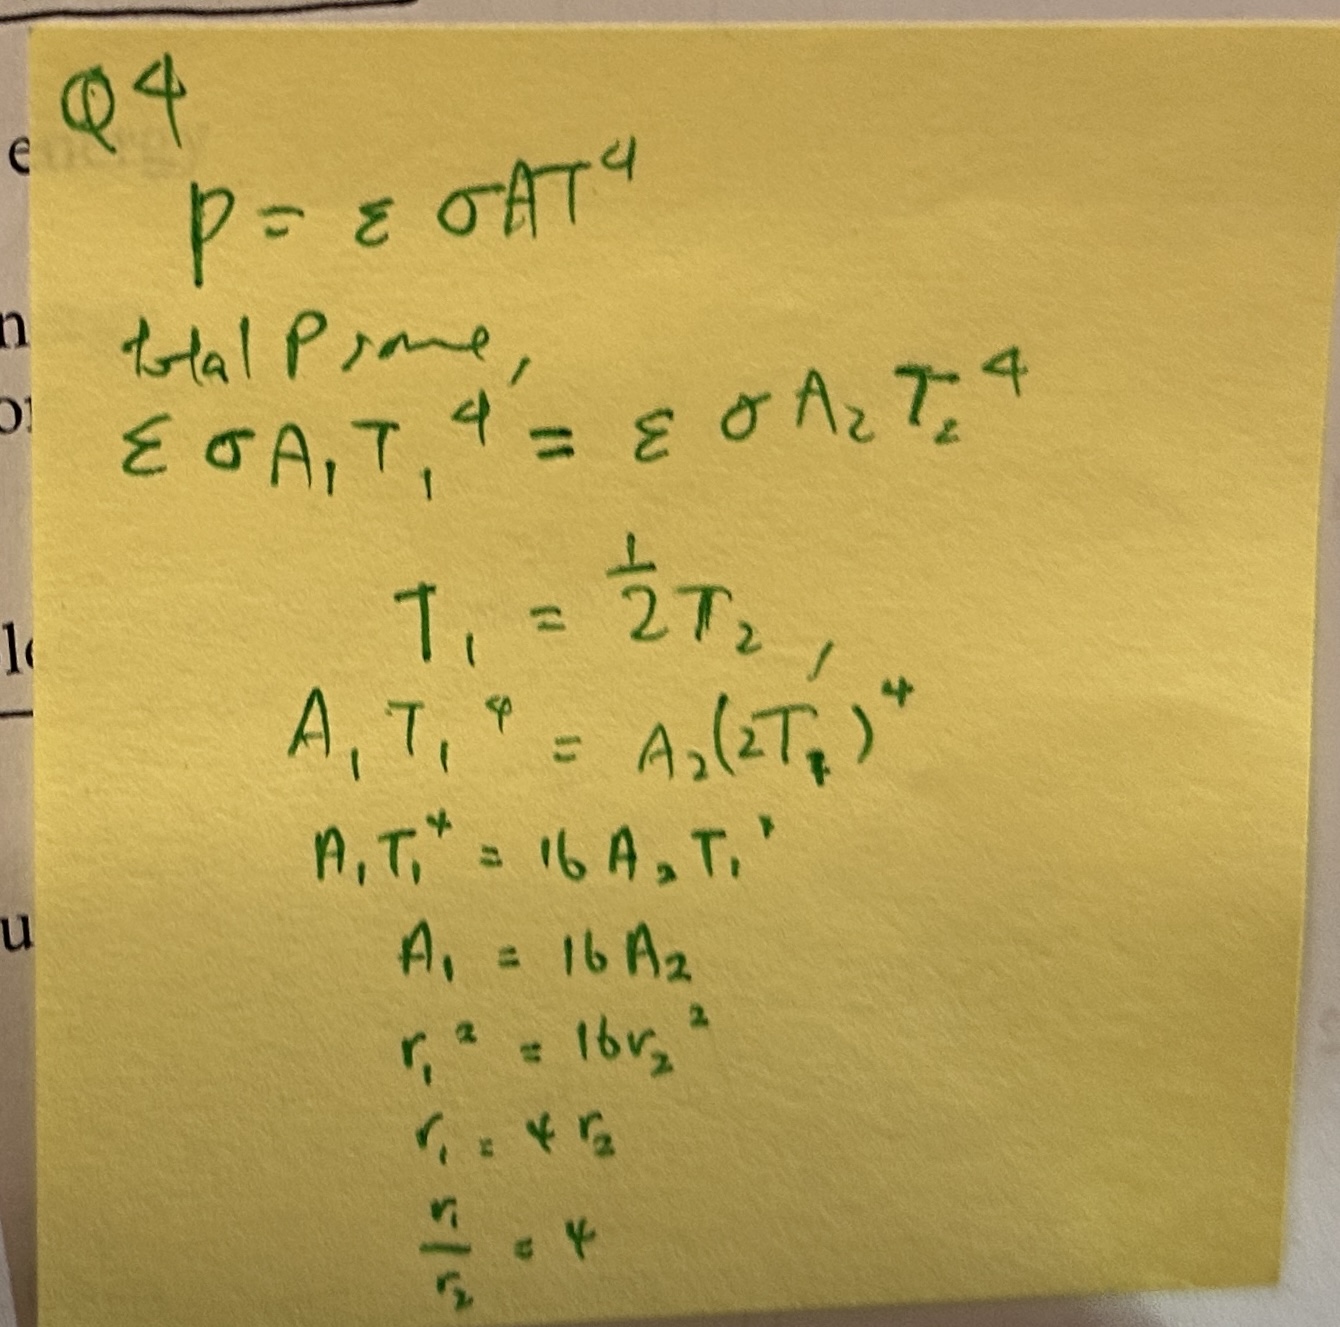 Q4
energy
P = ε σAT⁴
total P same,
ε σA₁T₁⁴ = ε σA₂T₂⁴
T₁ = ½T₂,
A₁T₁⁴ = A₂(2T₁)⁴
A₁T₁⁴ = 16A₂T₁⁴
A₁ = 16A₂
r₁² = 16r₂²
r₁ = 4r₂
r₁/r₂ = 4